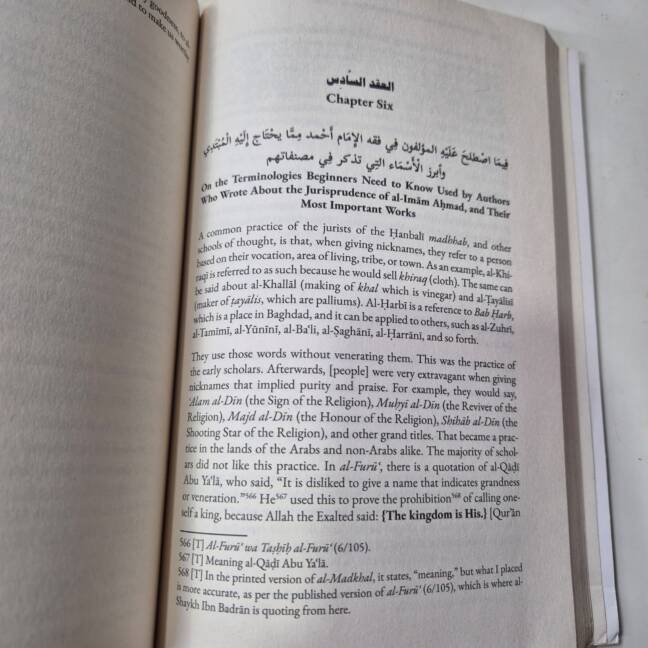 goodness, to al-
d to make us worthy
العقد السَّادِس
Chapter Six
فِيمَا اصْطَلَحَ عَلَيْهِ المؤلفون فِي فقه الإِمَام أَحْمد مِمَّا يحْتَاج إِلَيْهِ الْمُبْتَدِي
وأبرز الْأَسْمَاء الَّتِي تذكر فِي مصنفاتهم
On the Terminologies Beginners Need to Know Used by Authors
Who Wrote About the Jurisprudence of al-Imām Aḥmad, and Their
Most Important Works
A common practice of the jurists of the Ḥanbalī madhhab, and other
schools of thought, is that, when giving nicknames, they refer to a person
based on their vocation, area of living, tribe, or town. As an example, al-Khi-
raqī is referred to as such because he would sell khiraq (cloth). The same can
be said about al-Khallāl (making of khal which is vinegar) and al-Ṭayālisī
(maker of ṭayālis, which are palliums). Al-Ḥarbī is a reference to Bab Ḥarb,
which is a place in Baghdad, and it can be applied to others, such as al-Zuhrī,
al-Tamīmī, al-Yūnīnī, al-Ba'lī, al-Ṣaghānī, al-Ḥarrānī, and so forth.
They use those words without venerating them. This was the practice of
the early scholars. Afterwards, [people] were very extravagant when giving
nicknames that implied purity and praise. For example, they would say,
'Alam al-Dīn (the Sign of the Religion), Muḥyī al-Dīn (the Reviver of the
Religion), Majd al-Dīn (the Honour of the Religion), Shihāb al-Dīn (the
Shooting Star of the Religion), and other grand titles. That became a prac-
tice in the lands of the Arabs and non-Arabs alike. The majority of schol-
ars did not like this practice. In al-Furū', there is a quotation of al-Qāḍī
Abu Ya'lā, who said, “It is disliked to give a name that indicates grandness
or veneration.”⁵⁶⁶ He⁵⁶⁷ used this to prove the prohibition⁵⁶⁸ of calling one-
self a king, because Allah the Exalted said: {The kingdom is His.} [Qur'ān
566 [T] Al-Furū' wa Taṣḥīḥ al-Furū' (6/105).
567 [T] Meaning al-Qāḍī Abu Ya'lā.
568 [T] In the printed version of al-Madkhal, it states, “meaning,” but what I placed
is more accurate, as per the published version of al-Furū' (6/105), which is where al-
Shaykh Ibn Badrān is quoting from here.